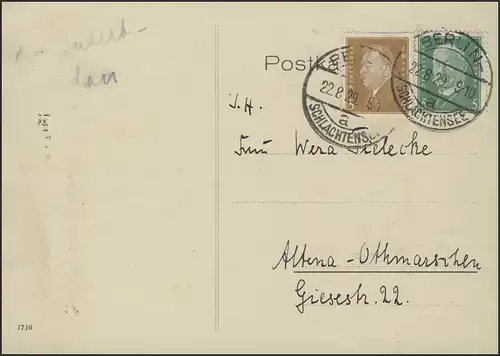 Postk
BERLIN
22.8.29. 9-10
a
SCHLACHTENSEE
22.8.29. 9
a
SCHLACHTENSE
5
I. H.
Frau Wera
Altona-Othmarschen
Giesestr. 22.
1710